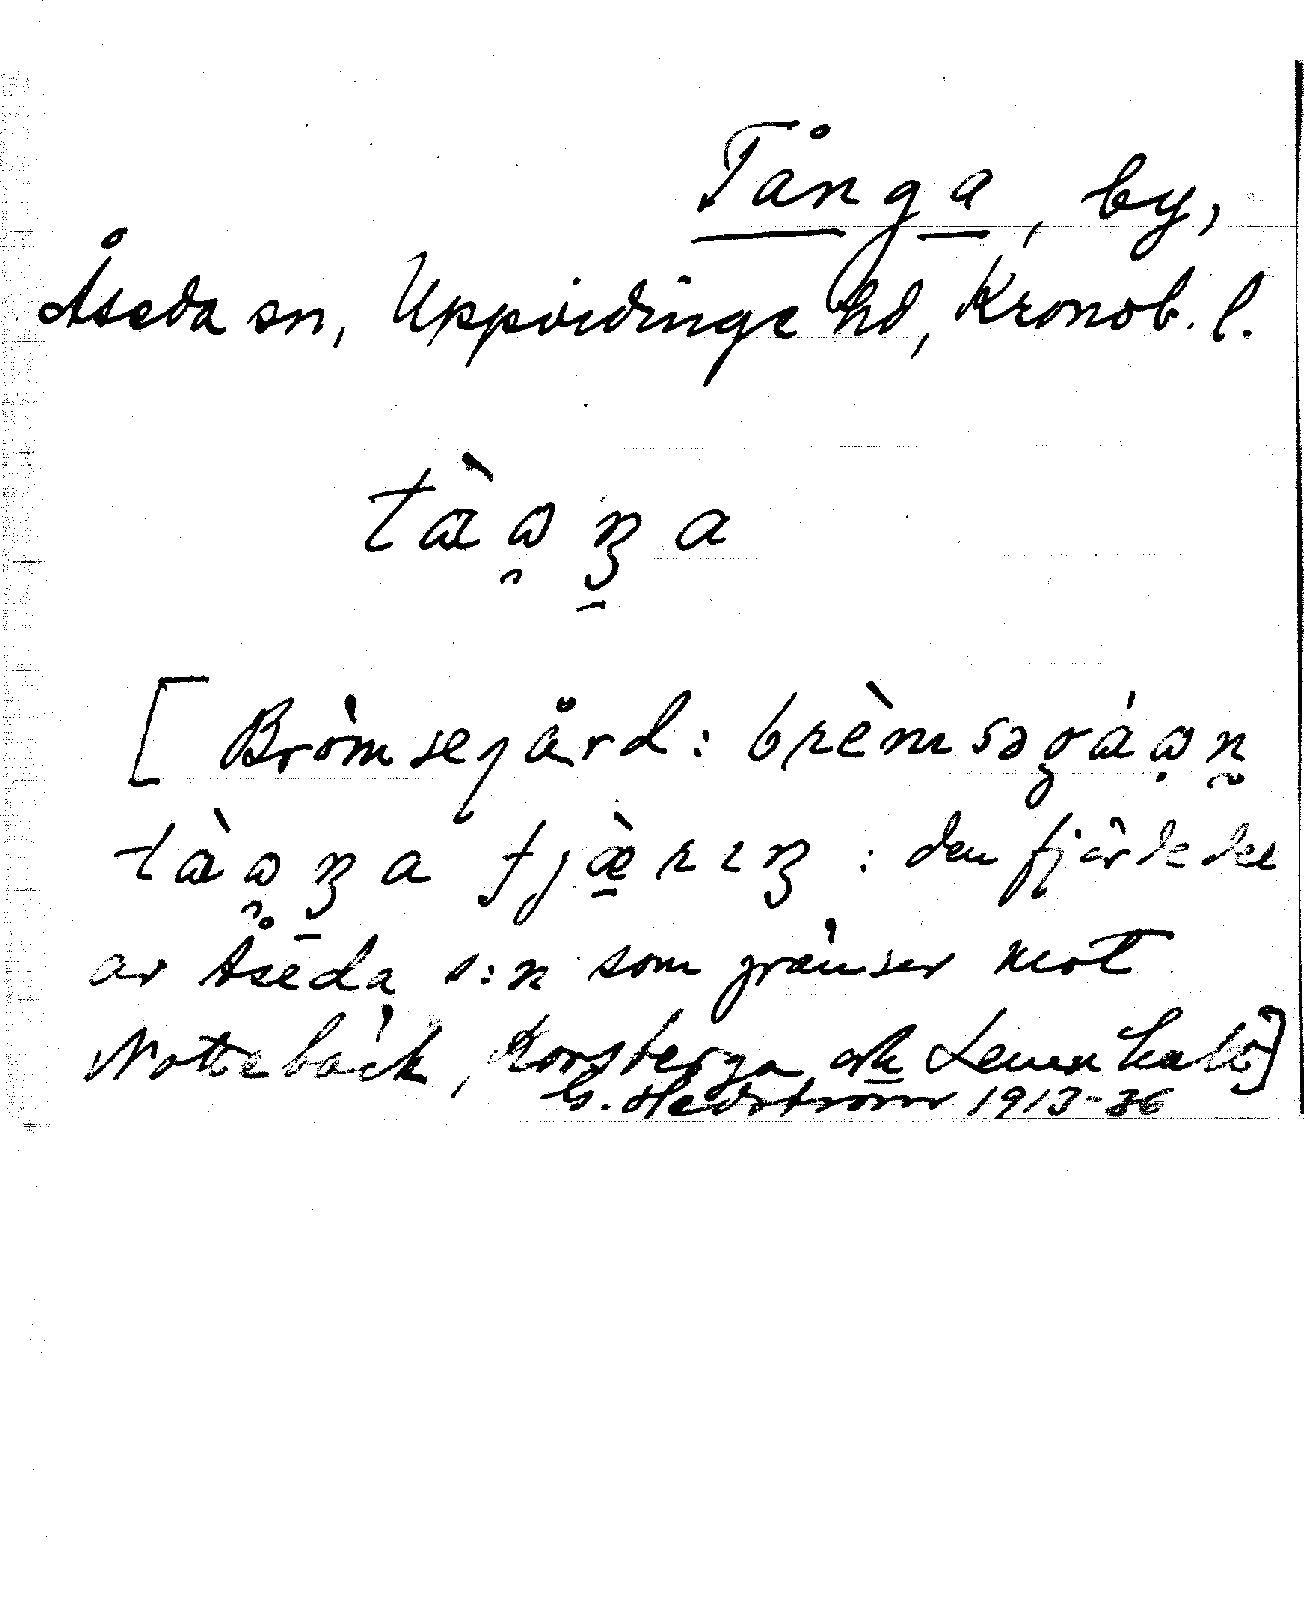 Tånga, by,
Åseda sn, Uppvidinge hd, Kronob. l.
tàa̯ŋa
[Brömsegård: brèmsəgáa̯n
tàa̯ŋa fjæ̀rıŋ : den fjärdedel
av Åseda s:n som gränser mot
Nottebäck, Korsberga och Lemnhult]
G. Hedström 1913-36